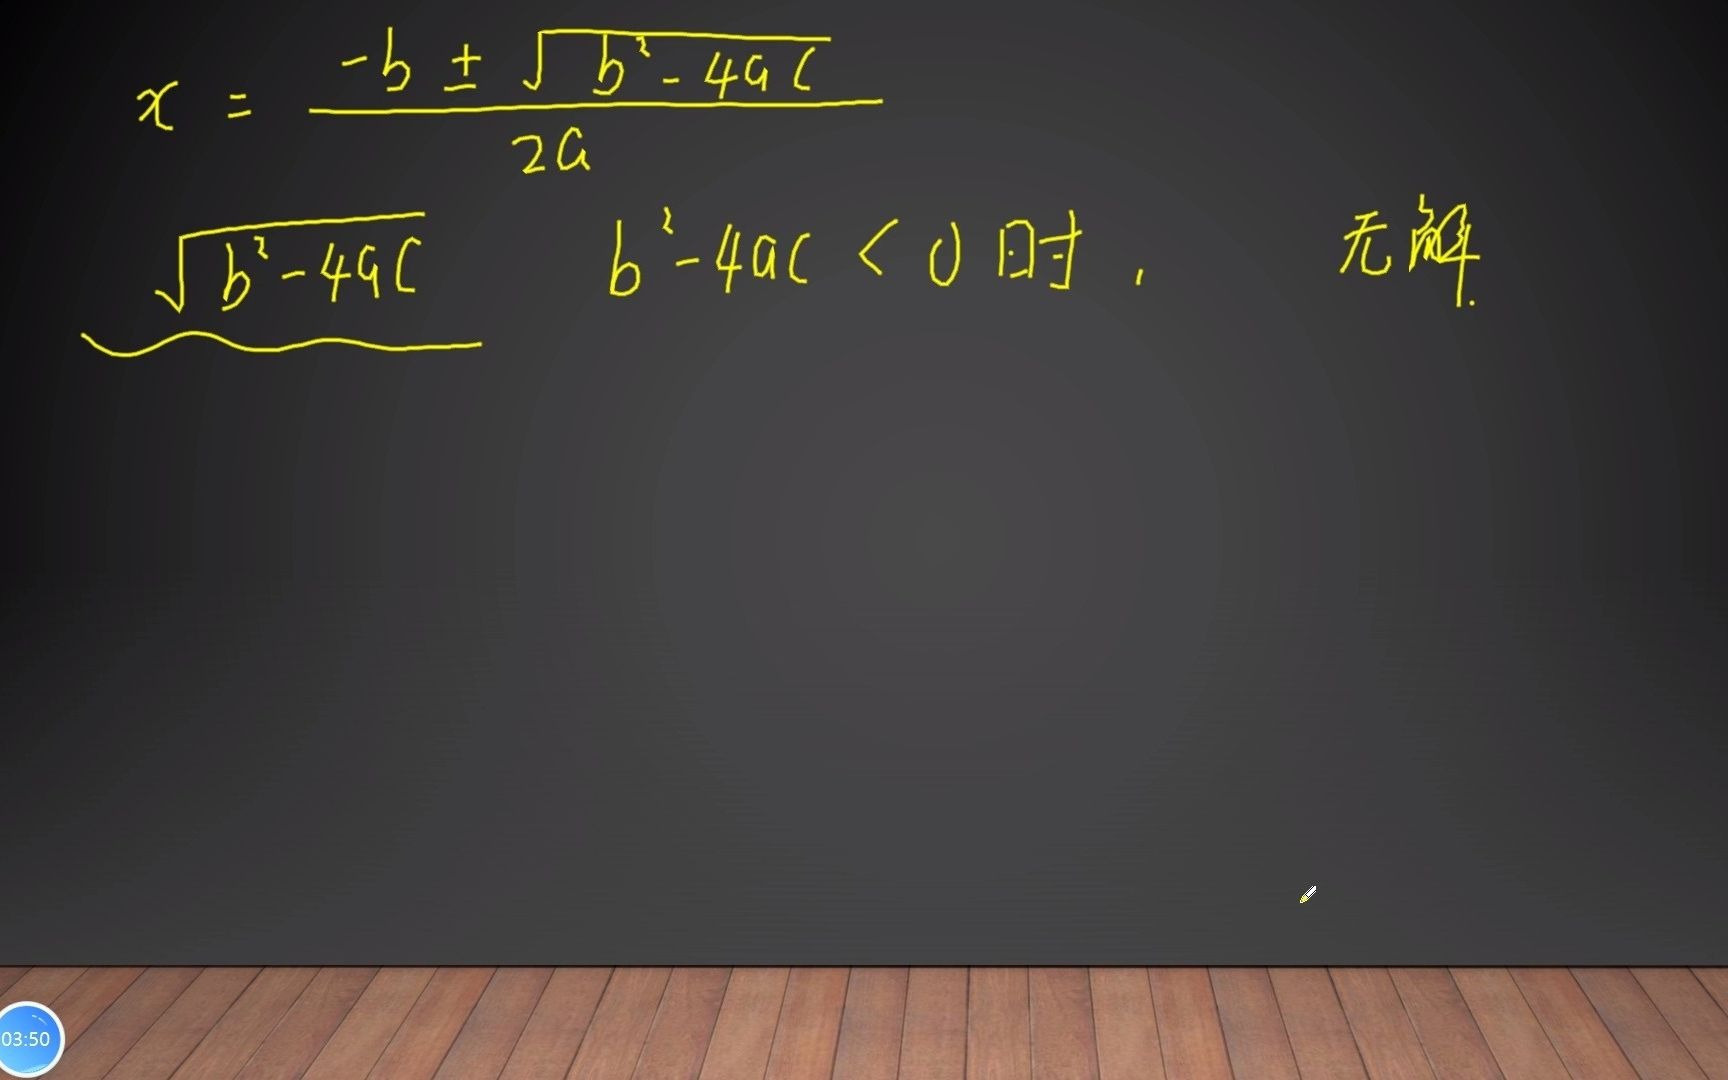 x = \frac{-b ± \sqrt{b²-4ac}}{2a}
\sqrt{b²-4ac} b²-4ac < 0时, 无解.
03:50